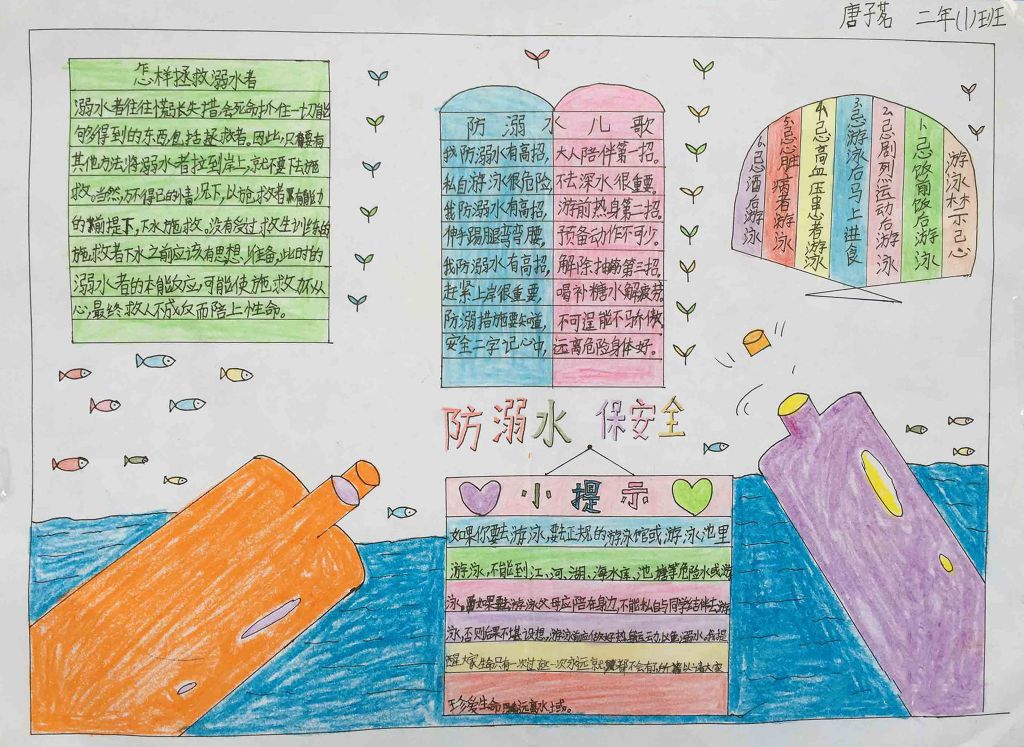 唐子茗 二年(1)班
怎样拯救溺水者
溺水者往往慌张失措,会死命抓住一切能
够得到的东西,包括拯救者。因此,只要有
其他办法将溺水者拉到岸上,就不要下去施
救。当然,万不得已的情况下,以施救者有能力
的前提下,下水施救。没有受过救生训练的
施救者下水之前应该有思想准备,此时的
溺水者的本能反应,可能使施救
心,最终救人不成反而陪上性命。
防溺水儿歌
我防溺水有高招,大人陪伴第一招。
私自游泳很危险,不去深水很重要。
我防溺水有高招,游前热身第二招。
伸手踢腿弯弯腰,预备动作不可少。
我防溺水有高招,解除抽筋第三招。
赶紧上岸很重要,喝补糖水解疲劳。
防溺措施要知道,不可逞能不骄傲。
安全二字记心中,远离危险身体好。
游泳禁忌
1.忌饭前饭后游泳
2.忌剧烈运动后游泳
3.忌游泳后马上进食
4.忌高血压患者游泳
5.忌心脏病者游泳
6.忌酒后游泳
防溺水 保安全
小提示
如果你要去游泳,要去正规的游泳馆或游泳池里
游泳,不能到江、河、湖、海水库、池塘等危险水或游
泳。如果要去游泳父母应陪在身边,不能私自与同学结伴去游
泳,否则后果不堪设想。游泳前应做好热身运动,以免溺水。
醒大家生命只有一次过这一次永远都不会有了所以请大家
珍爱生命 远离水域。